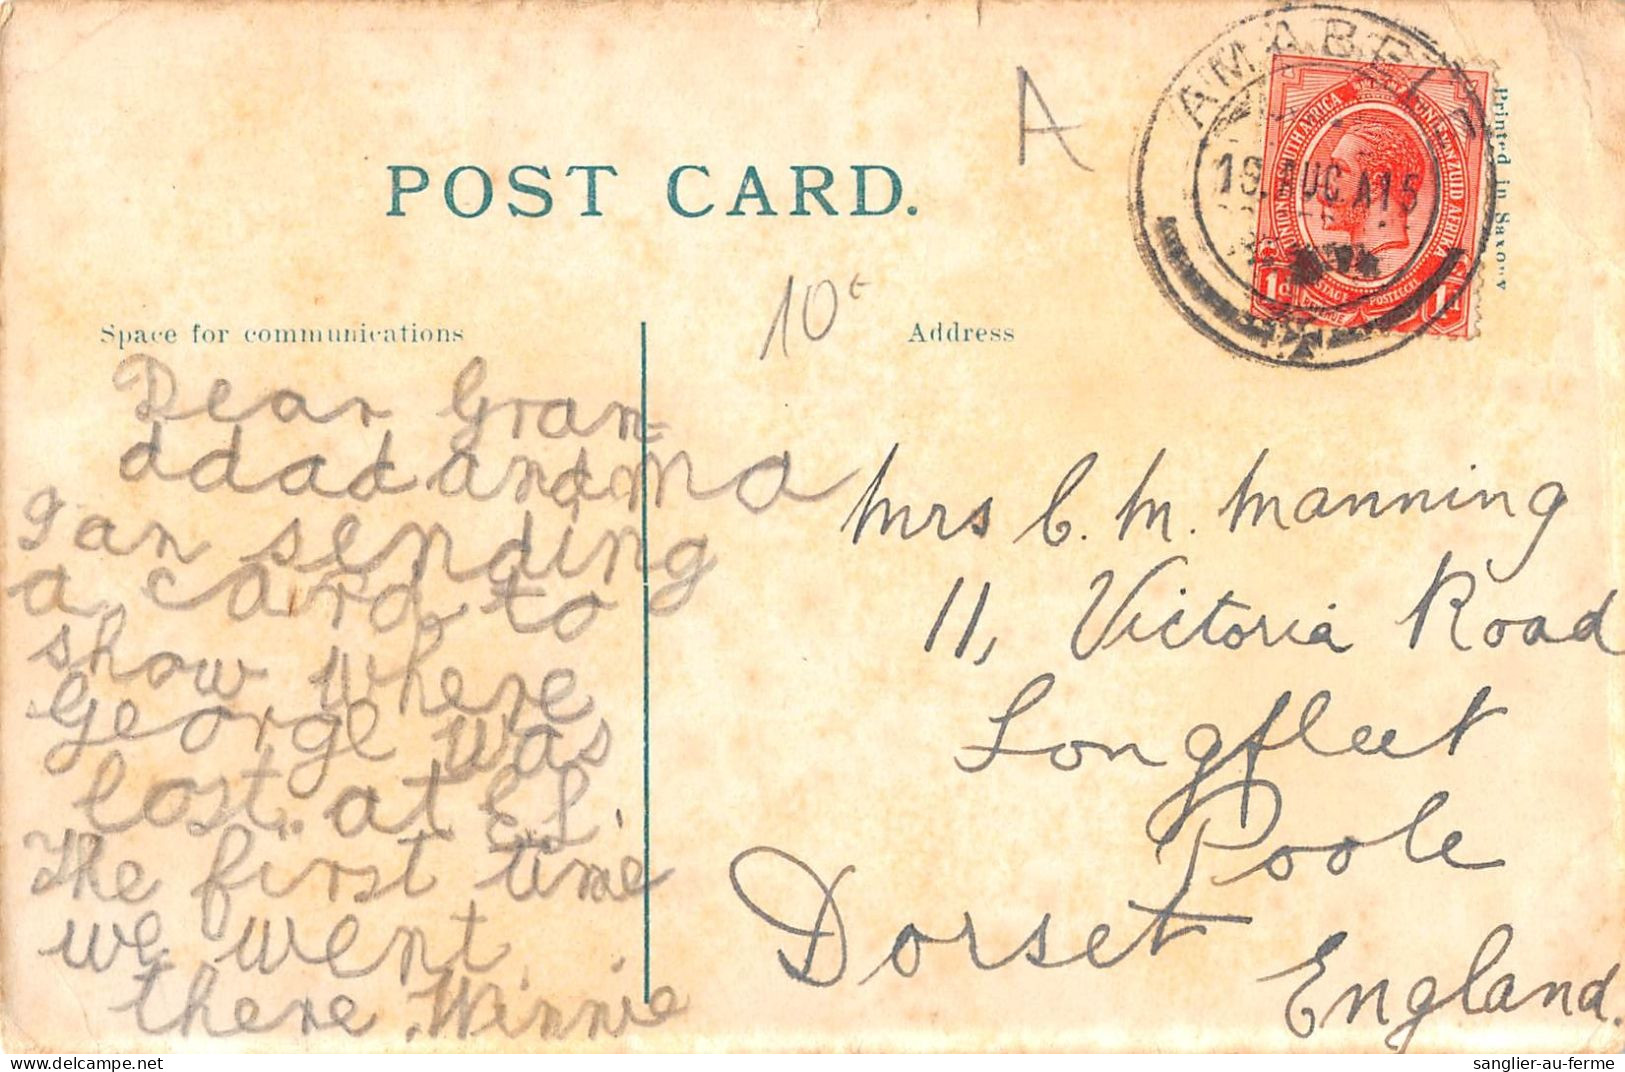 POST CARD.
A
10€
Space for communications
Address
Printed in Saxony
AMABEL
UNION OF SOUTH AFRICA
UNIE VAN ZUID AFRIKA
POSTAGE POSTZEGEL
1d 1d
AUG A15
Dear Gran-
ddad and ma
I an sending
a card to
show where
George was
lost.. at E.L.
The first time
we went
there. Winnie
Mrs C. M. Manning
11, Victoria Road
Longfleet
Poole
Dorset
England.
sanglier-au-ferme